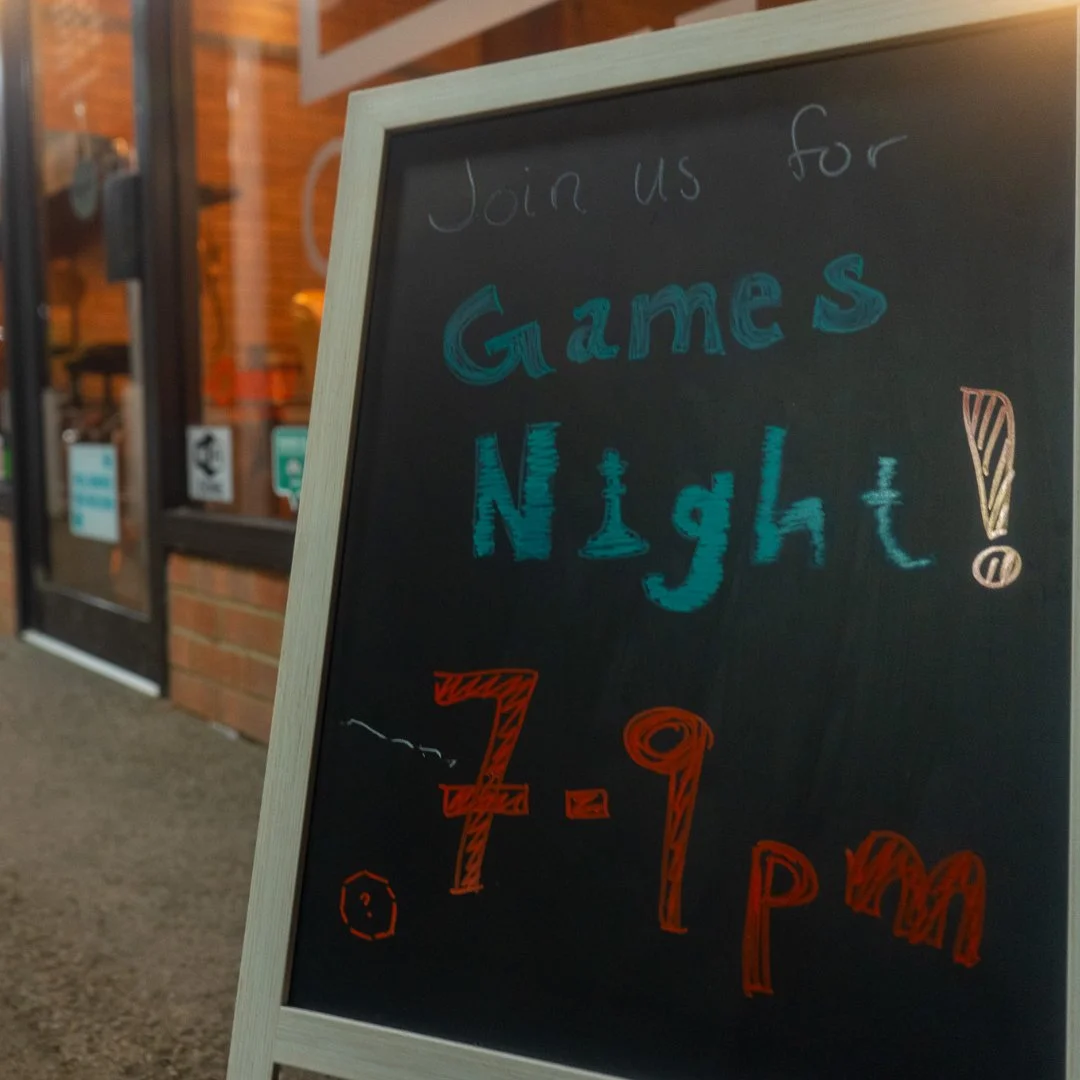 Join us for
Games
Night!
7-9pm
?